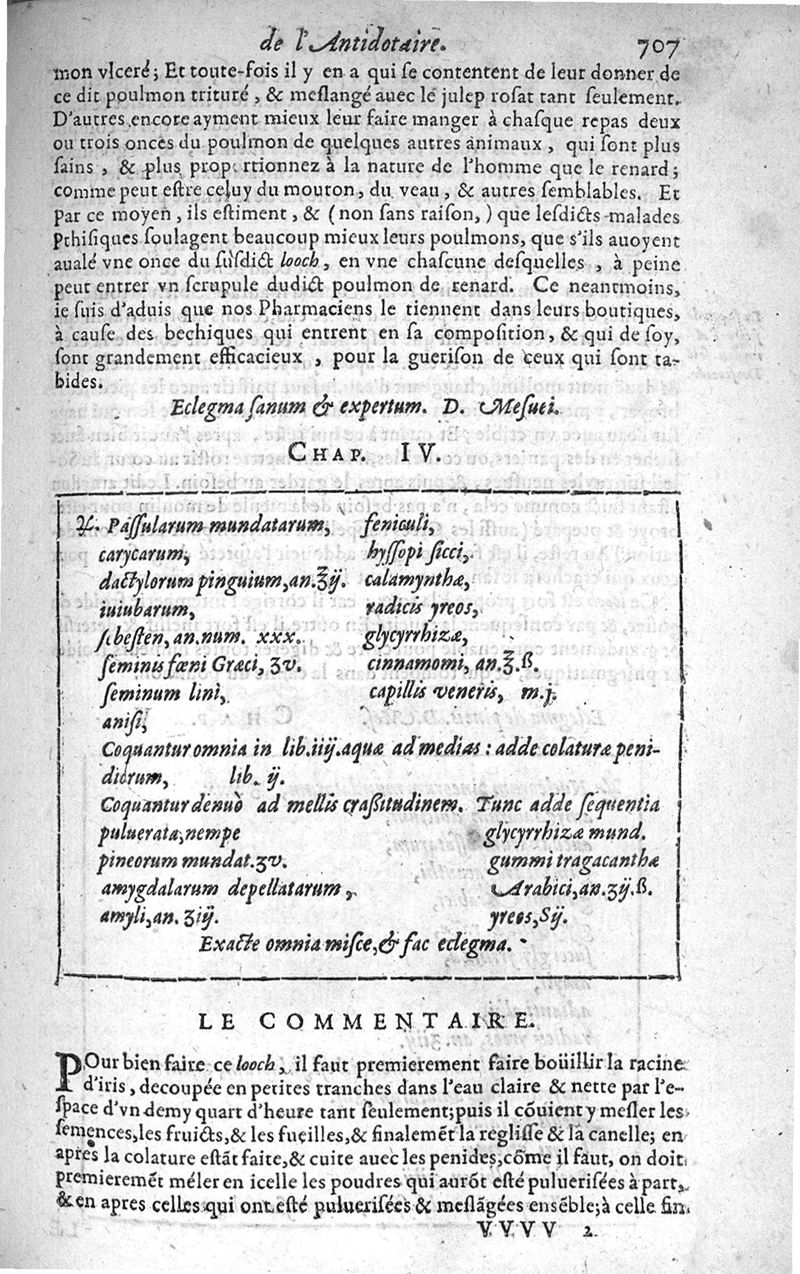 de l'Antidotaire. 707
mon vlceré; Et toute-fois il y en a qui ſe contentent de leur donner de
ce dit poulmon trituré, & meſlangé auec le julep roſat tant ſeulement.
D'autres encore ayment mieux leur faire manger à chaſque repas deux
ou trois onces du poulmon de quelques autres animaux, qui ſont plus
ſains, & plus proportionnez à la nature de l'homme que le renard;
comme peut eſtre celuy du mouton, du veau, & autres ſemblables. Et
par ce moyen, ils eſtiment, & (non ſans raiſon,) que leſdicts malades
pthiſiques ſoulagent beaucoup mieux leurs poulmons, que s'ils auoyent
aualé vne once du ſuſdict looch, en vne chaſcune deſquelles, à peine
peut entrer vn ſcrupule dudict poulmon de renard. Ce neantmoins,
ie ſuis d'aduis que nos Pharmaciens le tiennent dans leurs boutiques,
à cauſe des bechiques qui entrent en ſa compoſition, & qui de ſoy,
ſont grandement efficacieux, pour la gueriſon de ceux qui ſont ta-
bides.
Eclegma ſanum & expertum. D. Meſuei.
CHAP. IV.
℞. Paſſularum mundatarum,
carycarum,
dactylorum pinguium, an. ℥ij.
iuiubarum,
ſebeſten, an. num. xxx.
ſeminis fœni Græci, ʒv.
ſeminum lini,
aniſi,
feniculi,
hyſſopi ſicci,
calamynthæ,
radicis yreos,
glycyrrhizæ,
cinnamomi, an. ℥.ß.
capillis veneris, m.j.
Coquantur omnia in lib. iiij. aquæ ad medias: adde colaturæ peni-
diorum, lib. ij.
Coquantur denuò ad mellis craſsitudinem. Tunc adde ſequentia
puluerata, nempe
pineorum mundat. ʒv.
amygdalarum depellatarum,
amyli, an. ʒiij.
glycyrrhizæ mund.
gummi tragacanthæ
Arabici, an. ʒij.ß.
yreos, Sij.
Exacte omnia miſce, & fac eclegma.
LE COMMENTAIRE.
POur bien faire ce looch, il faut premierement faire boüillir la racine
d'iris, decoupée en petites tranches dans l'eau claire & nette par l'e-
ſpace d'vn demy quart d'heure tant ſeulement; puis il cõuient y meſler les
ſemences, les fruicts, & les fueilles, & finalemẽt la regliſſe & la canelle; en
apres la colature eſtãt faite, & cuite auec les penides, cõme il faut, on doit
premieremẽt méler en icelle les poudres qui aurõt eſté pulueriſées à part,
& en apres celles qui ont eſté pulueriſées & meſlãgées enſẽble; à celle fin
VVVV 2.